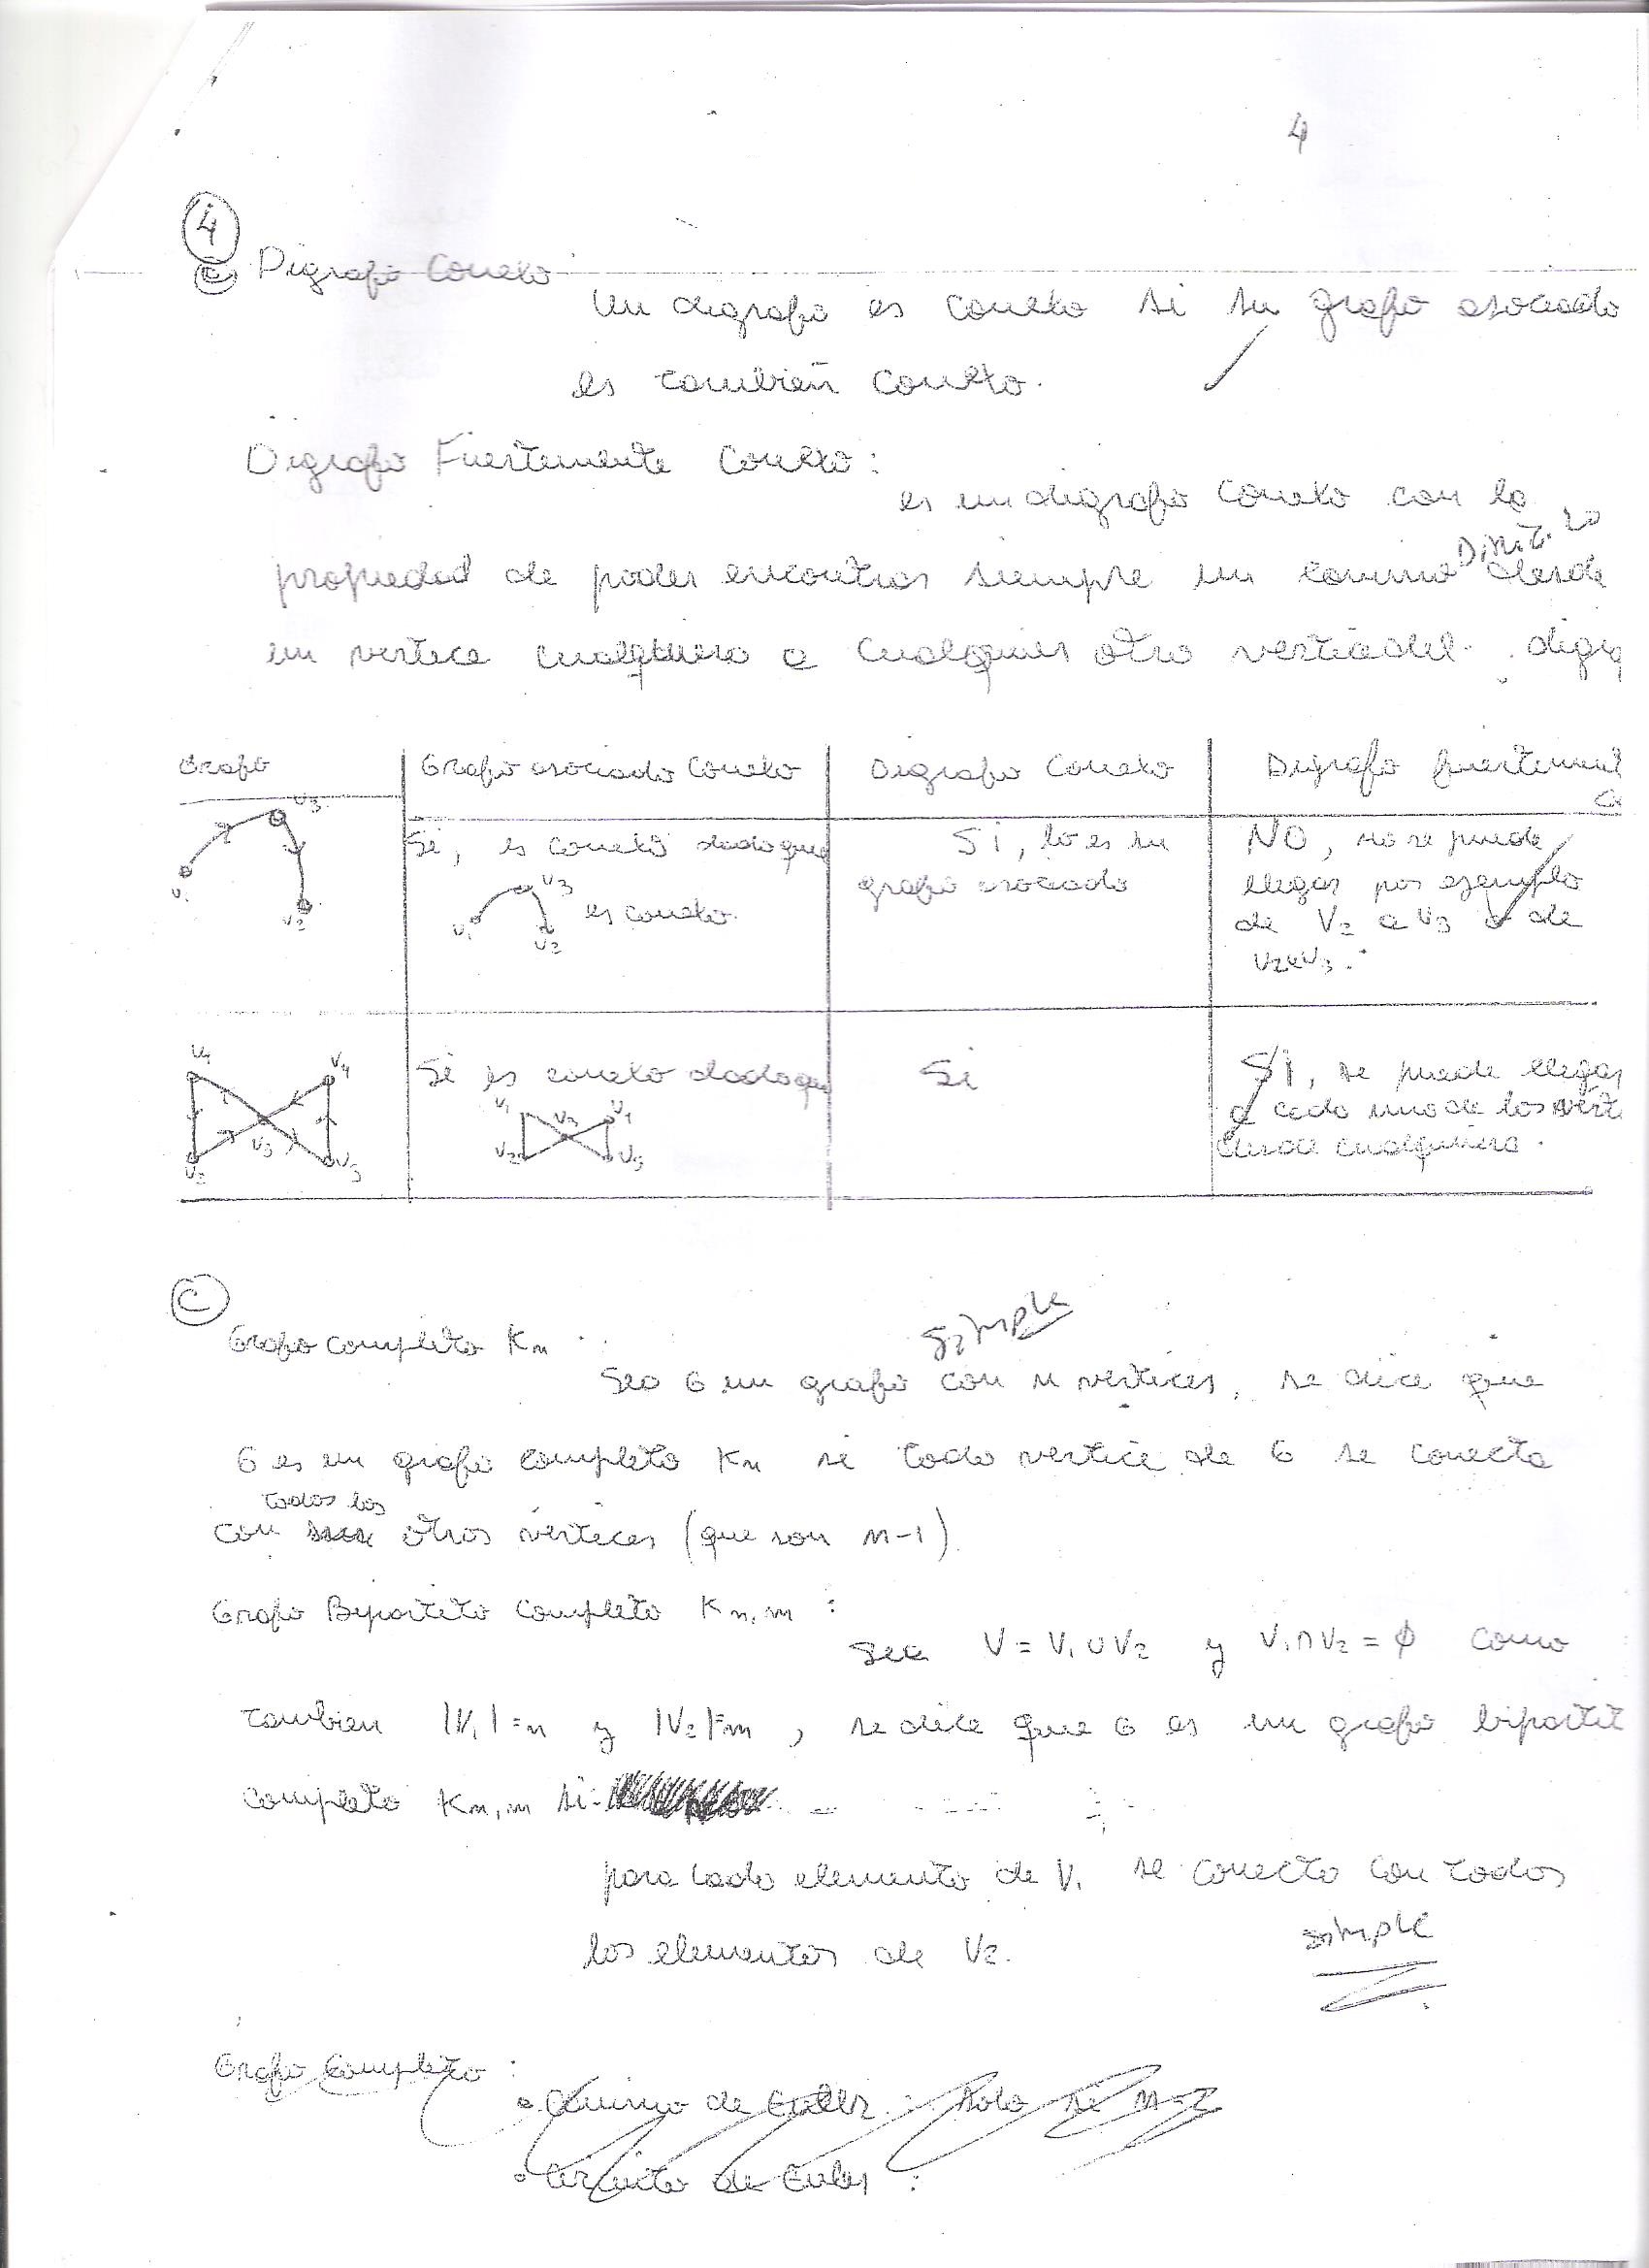 4
4
c Digrafo Conexo
Un digrafo es conexo si su grafo asociado
es tambien conexo.
Digrafo Fuertemente Conexo:
es un digrafo conexo con la
propiedad de poder encontrar siempre un camino desde
un vertice cualquiera a cualquier otro vertice del digr
Grafo
Grafo asociado conexo
Digrafo Conexo
Digrafo fuertement
V3
V1
V2
Si, es conexo dado que
V3
V1
V2
es conexo.
Si, lo es su
grafo asociado
NO, no se puede
llegar por ejemplo
de V2 a V3 o de
V1
V4
V2
V3
V5
Si es conexo dado que
V1
V3
V4
V2
V5
Si
SI, se puede llegar
a cada uno de los vert
desde cualquiera.
C
Grafo completo Kn
Simple
Sea G un grafo con n vertices, se dice que
G es un grafo completo Kn si todo vertice de G se conecta
todos los
con otros vertices (que son n-1)
Grafo Bipartito Completo Kn,m :
Sea V = V1 ∪ V2 y V1 ∩ V2 = ϕ como
tambien |V1| = n y |V2| = m, se dice que G es un grafo bipartit
completo Kn,m si:
para cada elemento de V1 se conecta con todos
los elementos de V2.
simple
Grafo Completo :
• Camino de Euler : Solo si n=2
• Circuito de Euler :